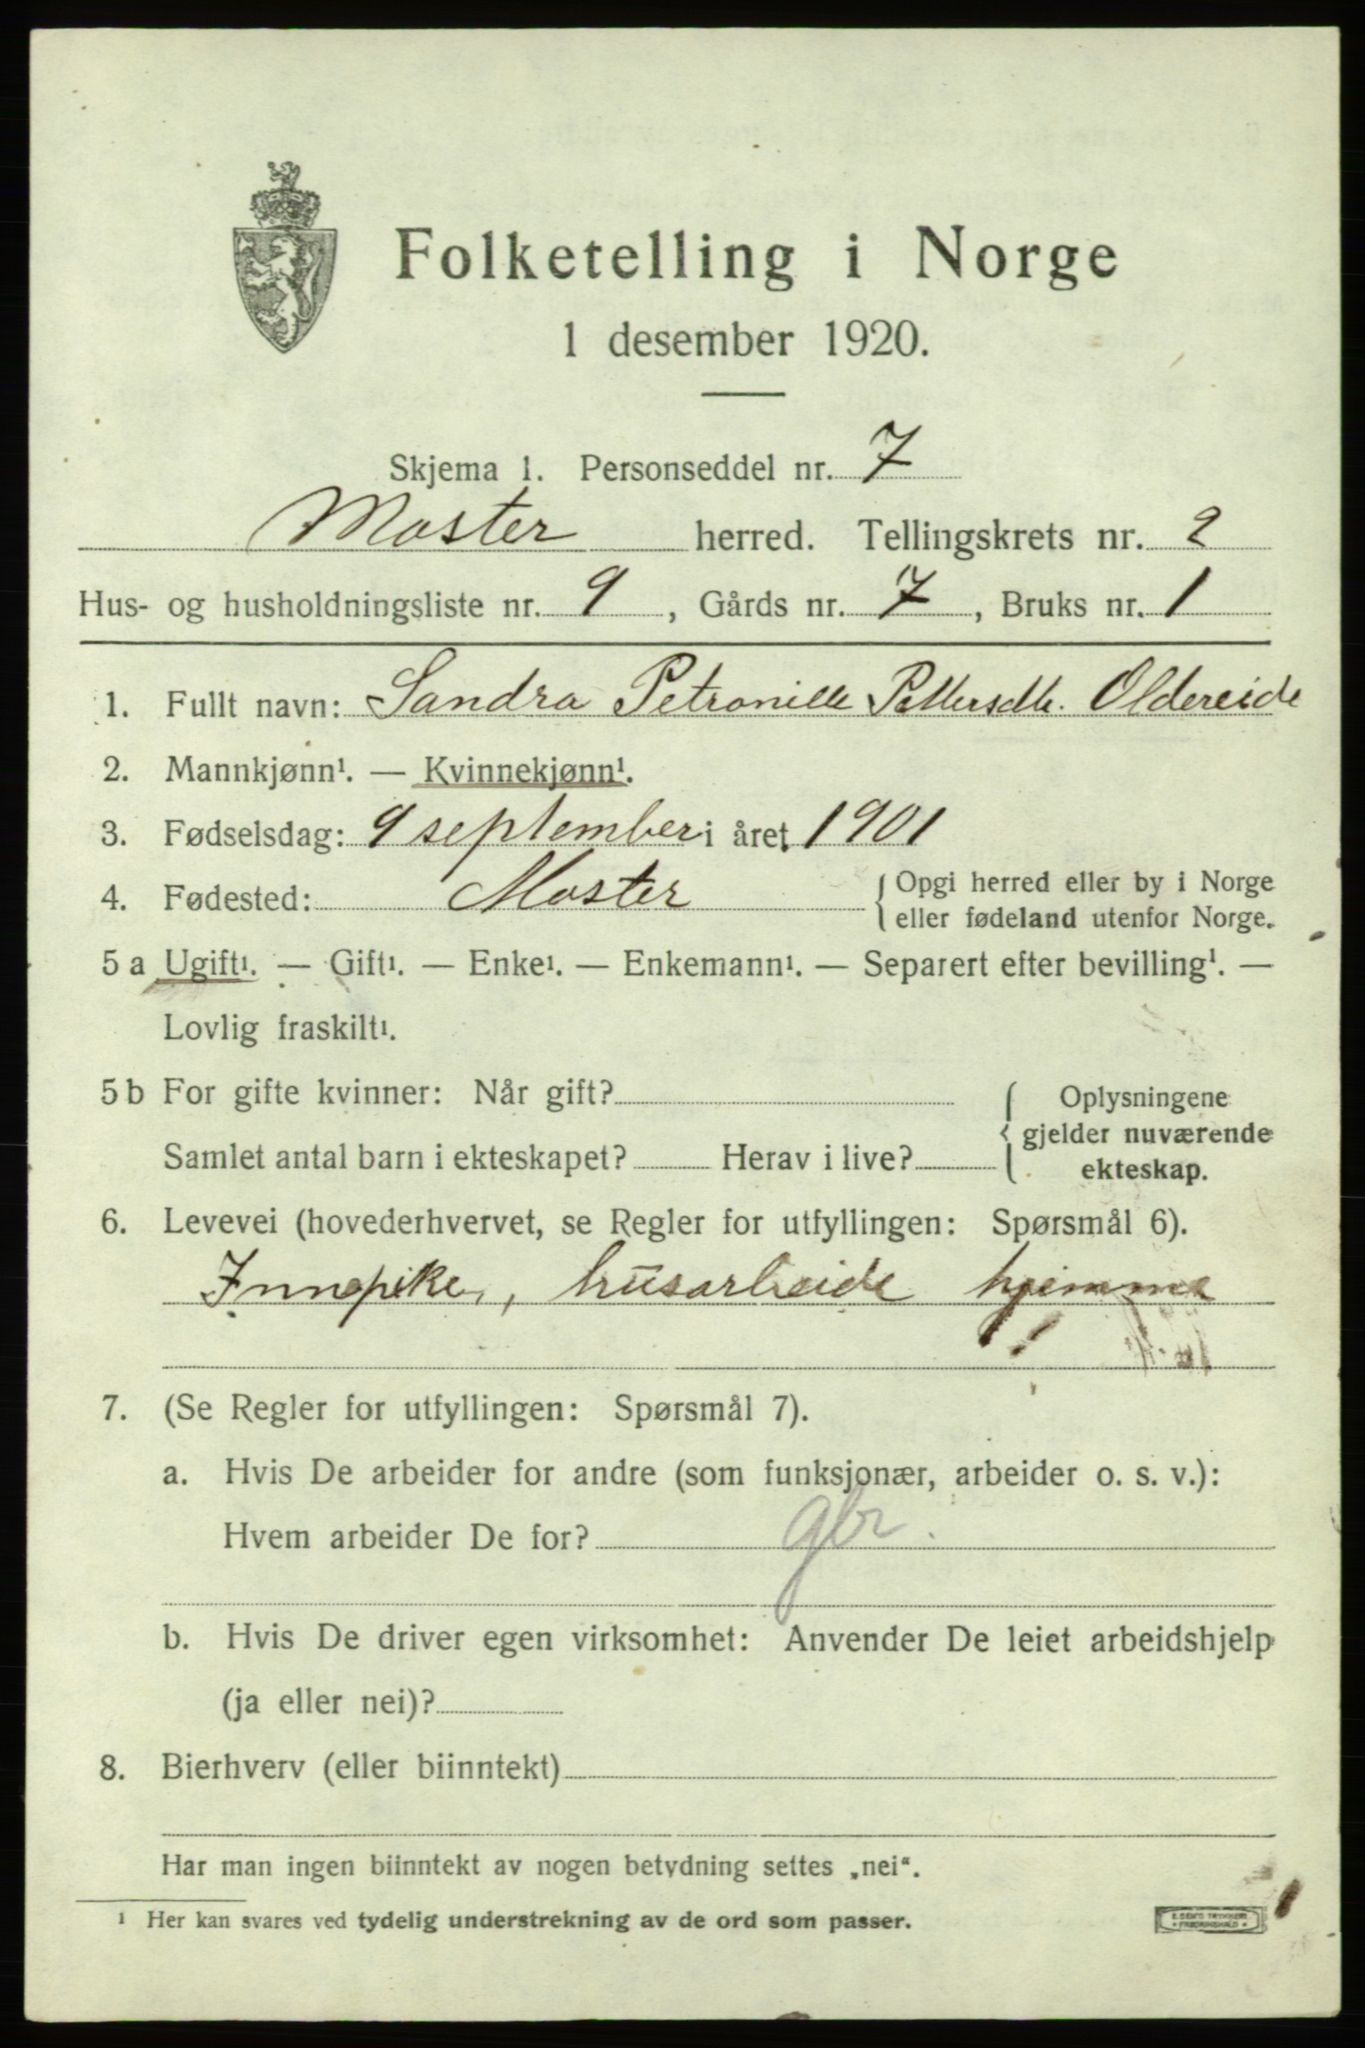 Folketelling i Norge
1 desember 1920.
Skjema 1. Personseddel nr. 7
Moster herred. Tellingskrets nr. 2
Hus- og husholdningsliste nr. 9, Gårds nr. 7, Bruks nr. 1
1. Fullt navn: Sandra Petronille Pettersdtr. Oldereide
2. Mannkjønn¹. — Kvinnekjønn¹.
3. Fødselsdag: 9 september i året 1901
4. Fødested: Moster {Opgi herred eller by i Norge
eller fødeland utenfor Norge.
5 a Ugift¹. — Gift¹. — Enke¹. — Enkemann¹. — Separert efter bevilling¹. —
Lovlig fraskilt¹.
5 b For gifte kvinner: Når gift?
Samlet antal barn i ekteskapet? Herav i live?
{Oplysningene
gjelder nuværende
ekteskap.
6. Levevei (hovederhvervet, se Regler for utfyllingen: Spørsmål 6).
Innepike, husarbeide hjemme
7. (Se Regler for utfyllingen: Spørsmål 7).
a. Hvis De arbeider for andre (som funksjonær, arbeider o. s. v.):
Hvem arbeider De for? gbr.
b. Hvis De driver egen virksomhet: Anvender De leiet arbeidshjelp
(ja eller nei)?
8. Bierhverv (eller biinntekt)
Har man ingen biinntekt av nogen betydning settes „nei“.
¹ Her kan svares ved tydelig understrekning av de ord som passer.